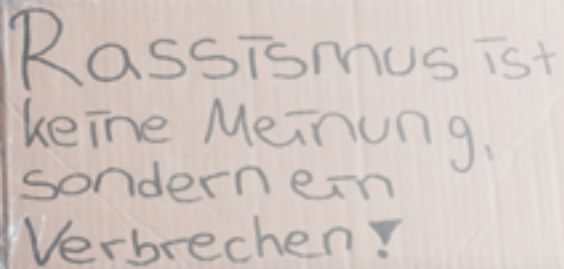 Rassismus ist
keine Meinung,
sondern ein
Verbrechen!